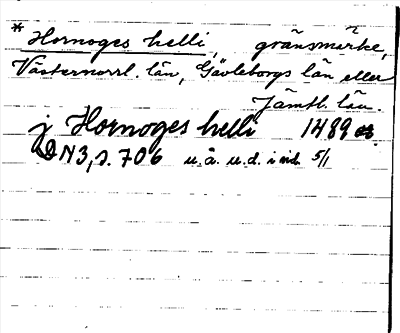 * Hornoges helli, gränsmärke,
Västernorrl. län, Gävleborgs län eller
Jämtl. län.
j Hornoges helli 1489
DN3, s. 706 u.å. u.d. i vid. 5/1